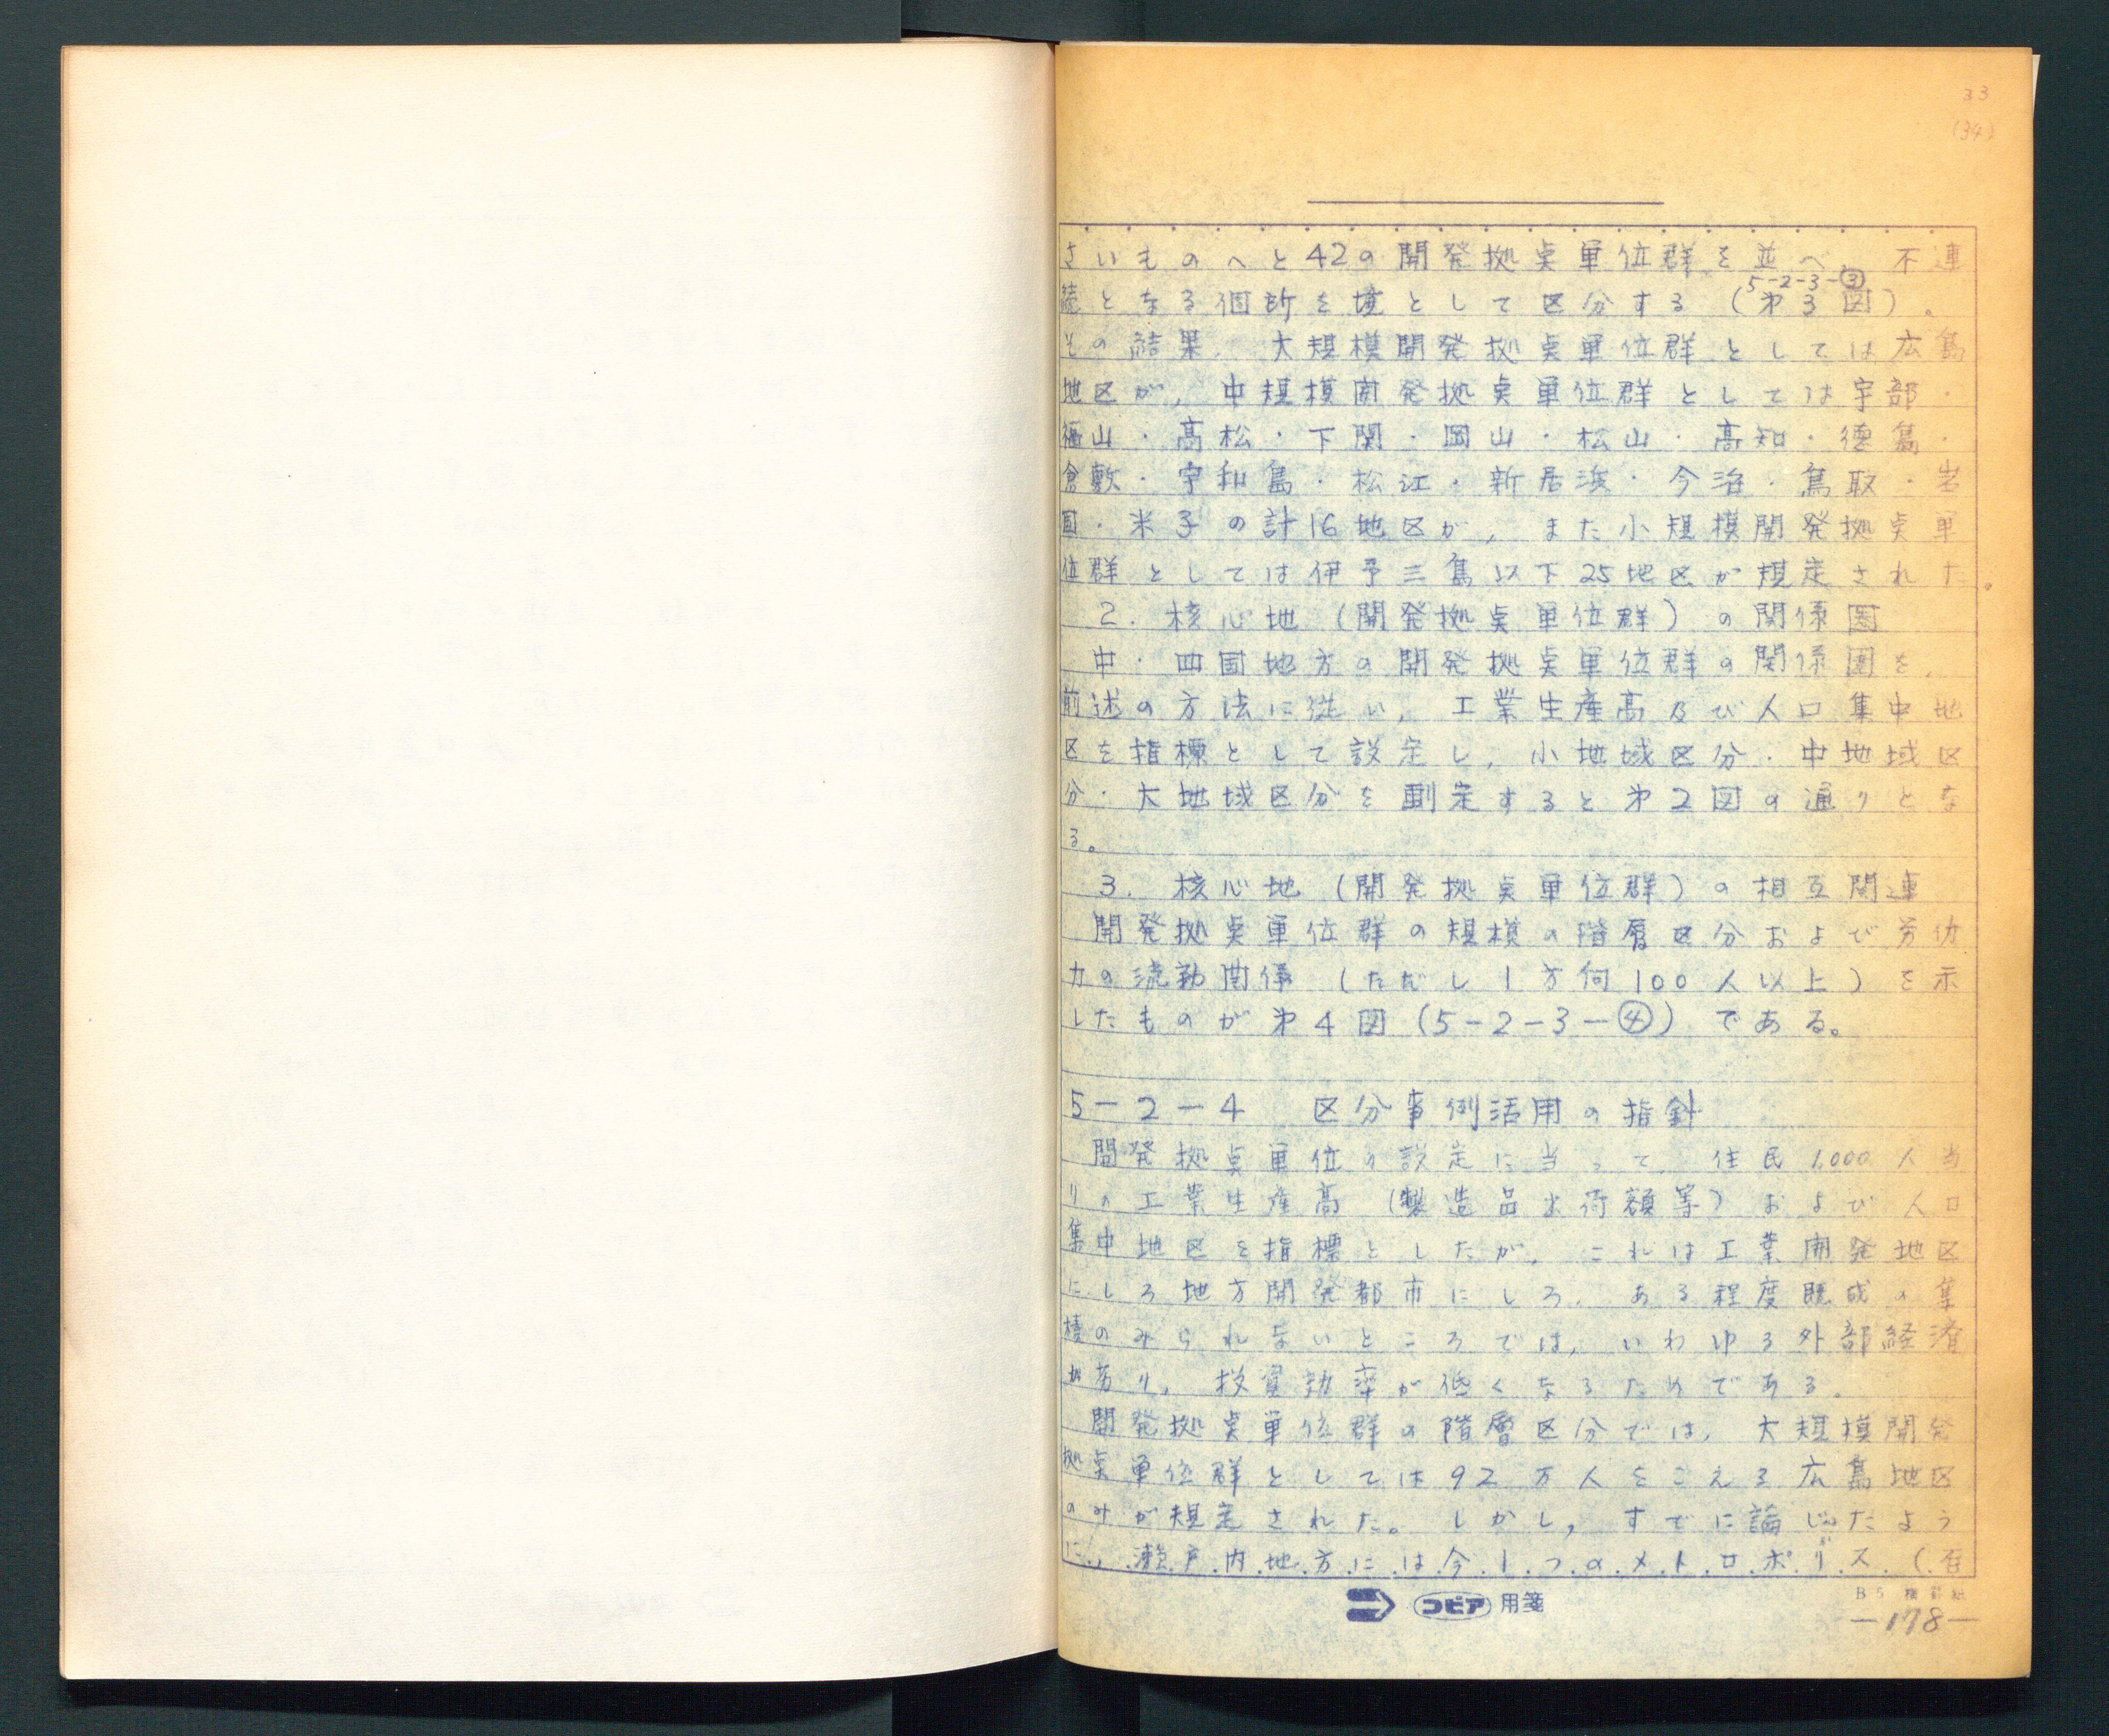 33
(34)
さいものへと42の開発拠点単位群を並べ、不連
5-2-3-③
続となる個所を境として区分する(第3図)。
その結果、大規模開発拠点単位群としては広島
地区が，中規模開発拠点単位群としては宇部・
福山・高松・下関・岡山・松山・高知・徳島・
倉敷・宇和島・松江・新居浜・今治・鳥取・岩
国・米子の計16地区が，また小規模開発拠点単
位群としては伊予三島以下25地区が規定された。
2. 核心地(開発拠点単位群)の関係圏
中・四国地方の開発拠点単位群の関係圏を，
前述の方法に従い，工業生産高及び人口集中地
区を指標として設定し，小地域区分・中地域区
分・大地域区分を画定すると第2図の通りとな
る。
3. 核心地(開発拠点単位群)の相互関連
開発拠点単位群の規模の階層区分および労仂
力の流動関係(ただし1方向100人以上)を示
したものが第4図(5-2-3-④)である。
5-2-4 区分事例活用の指針
開発拠点単位の設定に当って，住民1,000人当
りの工業生産高(製造品出荷額等)および人口
集中地区を指標としたが，これは工業開発地区
にしろ地方開発都市にしろ，ある程度既成の集
積のみられないところでは，いわゆる外部経済
が劣り，投資効率が低くなるためである。
開発拠点単位群の階層区分では，大規模開発
拠点単位群としては92万人をこえる広島地区
のみが規定された。しかし，すでに論じたよう
に，瀬戸内地方には今1つのメトロポリス(百
コピア用箋
B5 横罫紙
-178-